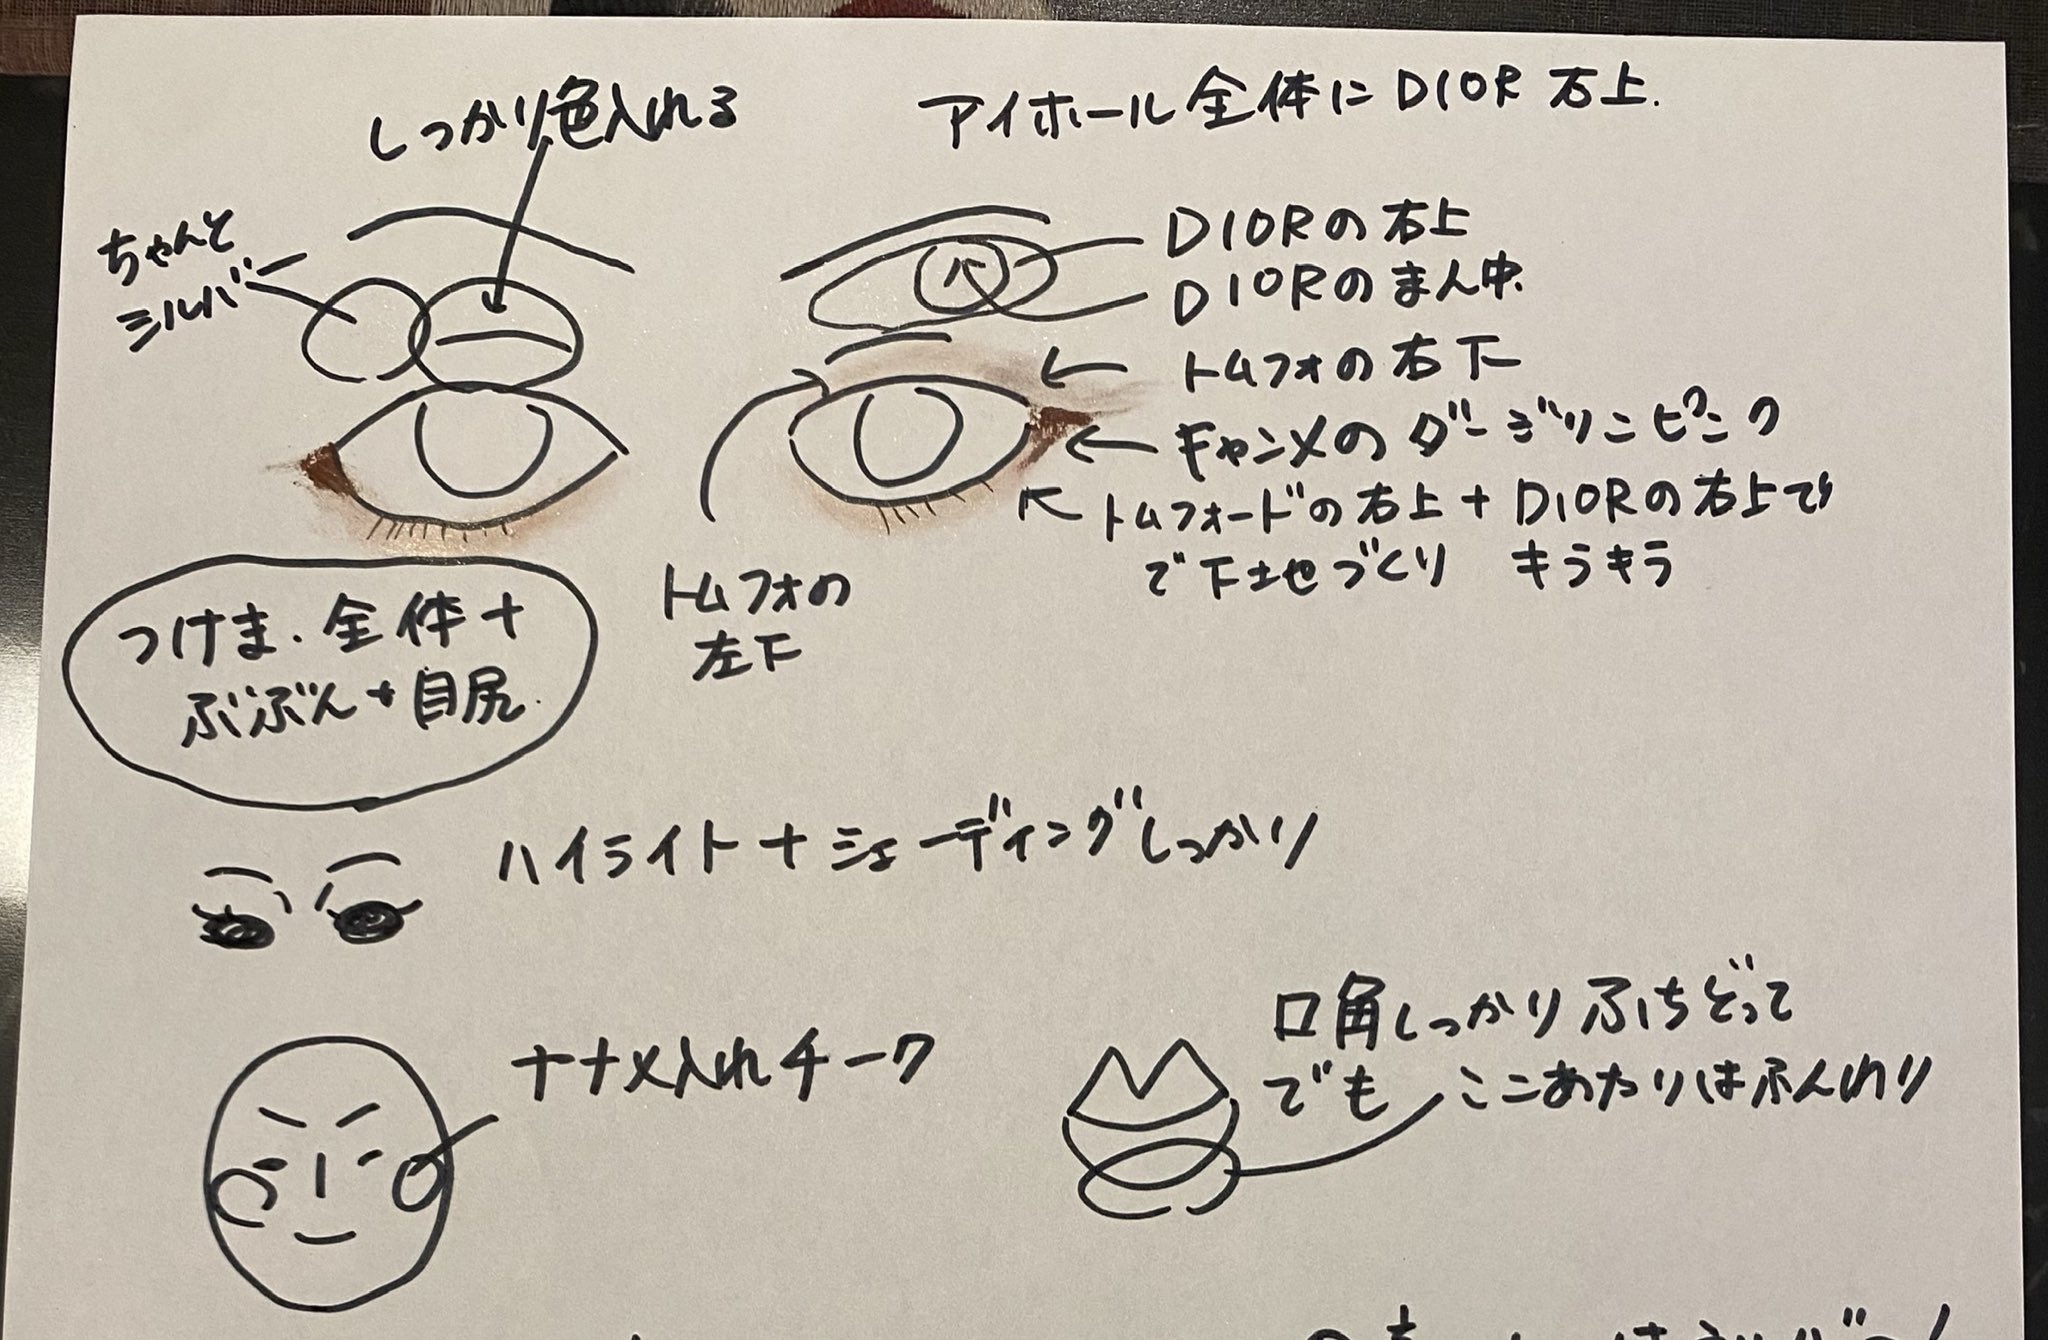 しっかり色入れる
アイホール全体にDIOR右上.
ちゃんと
シルバー
DIORの右上
DIORのまん中.
トムフォの右下
キャンメのダージリンピンク
トムフォードの右上+DIORの右上で
で下地づくり キラキラ
トムフォの
左下
つけま.全体+
ぶぶん+目尻.
ハイライト+シェーディングしっかり
ナナメ入れチーク
口角しっかりふちどって
でも ここあたりはふんわり